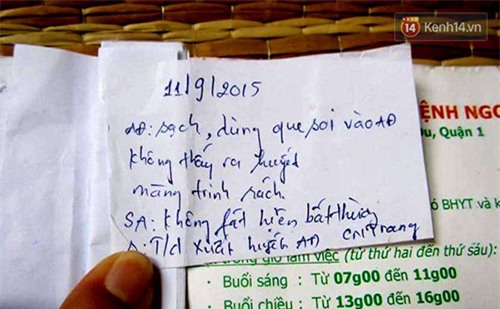 14 Kenh14.vn
11/9/2015
AĐ: sạch, dùng que soi vào AĐ
không thấy ra huyết
màng trinh rách.
SA: không fát hiện bất thường
T/d xuất huyết AĐ CN. Trang
ỆNH NGO
Quận 1
ó BHYT và k
giờ làm việc (từ thứ hai đến thứ sáu):
• Buổi sáng : Từ 07g00 đến 11g00
• Buổi chiều : Từ 13g00 đến 16g00